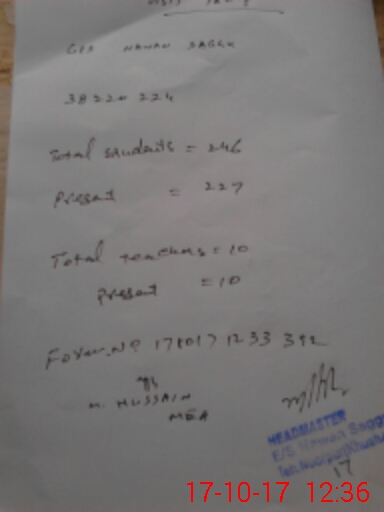 GES NAWAN SAGGU
38220 224
Total students = 246
Present = 227
Total teachers = 10
Present = 10
Form. No 171017 1233 392
M. HUSSAIN
MEA
HEADMASTER
17
17-10-17 12:36